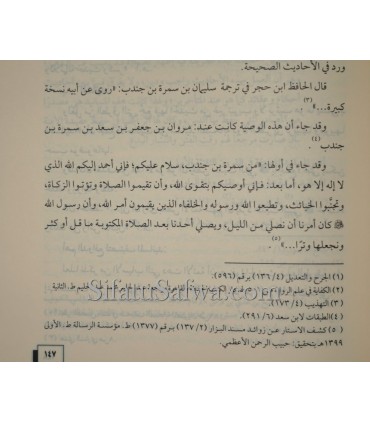 ورد في الأحاديث الصحيحة.
قال الحافظ ابن حجر في ترجمة سليمان بن سمرة بن جندب: «روى عن أبيه نسخة
كبيرة...»(٣).
وقد جاء أن هذه الوصية كانت عند: مروان بن جعفر بن سعد بن سمرة بن
جندب(٤).
وقد جاء في أولها: «من سمرة بن جندب، سلام عليكم؛ فإني أحمد إليكم الله الذي
لا إله إلا هو، أما بعد: فإني أوصيكم بتقوى الله، وأن تقيموا الصلاة وتؤتوا الزكاة،
وتجتنبوا الخبائث، وتطيعوا الله ورسوله والخلفاء الذين يقيمون أمر الله، وأن رسول الله
ﷺ كان أمرنا أن نصلي من الليل، ويصلي أحدنا بعد الصلاة المكتوبة ما قل أو كثر
ونجعلها وترًا...»(٥).
(١) الجرح والتعديل (٤/ ١٣٦) برقم (٥٩٦).
(٢) الكفاية في علم الرواية ط. الثانية
(٣) التهذيب (٤/ ١٧٣).
(٤) الطبقات لابن سعد (٦/ ٢٩١).
(٥) كشف الأستار عن زوائد مسند البزار (٢/ ١٣٧) برقم (١٣٧٧) ط. مؤسسة الرسالة ط. الأولى
١٣٩٩هـ بتحقيق: حبيب الرحمن الأعظمي.
١٤٧
SifatuSafwa.com